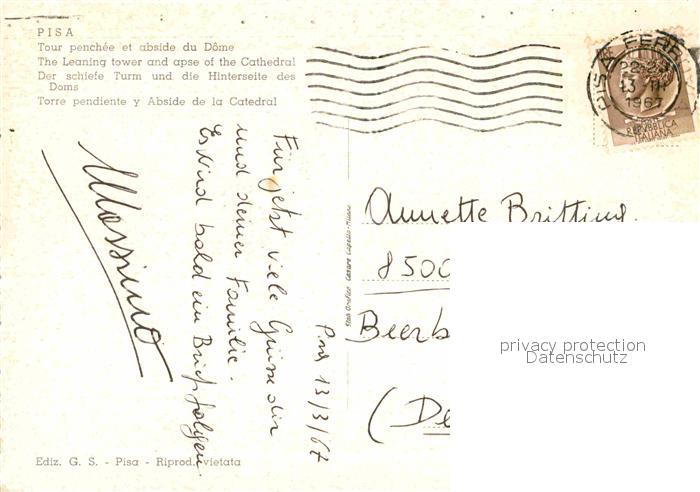 PISA
Tour penchée et abside du Dôme
The Leaning tower and apse of the Cathedral
Der schiefe Turm und die Hinterseite des
Doms
Torre pendiente y Abside de la Catedral
PISA FERR
13 III
1967
REPVBBLICA
ITALIANA
Pisa 13/3/67
Für jetzt viele Grüsse dir
und deiner Familie.
Es wird bald ein Brief folgen.
Massimo
Annette
8500
Beerb
(De
privacy protection
Datenschutz
Ediz. G. S. - Pisa - Riprod. vietata